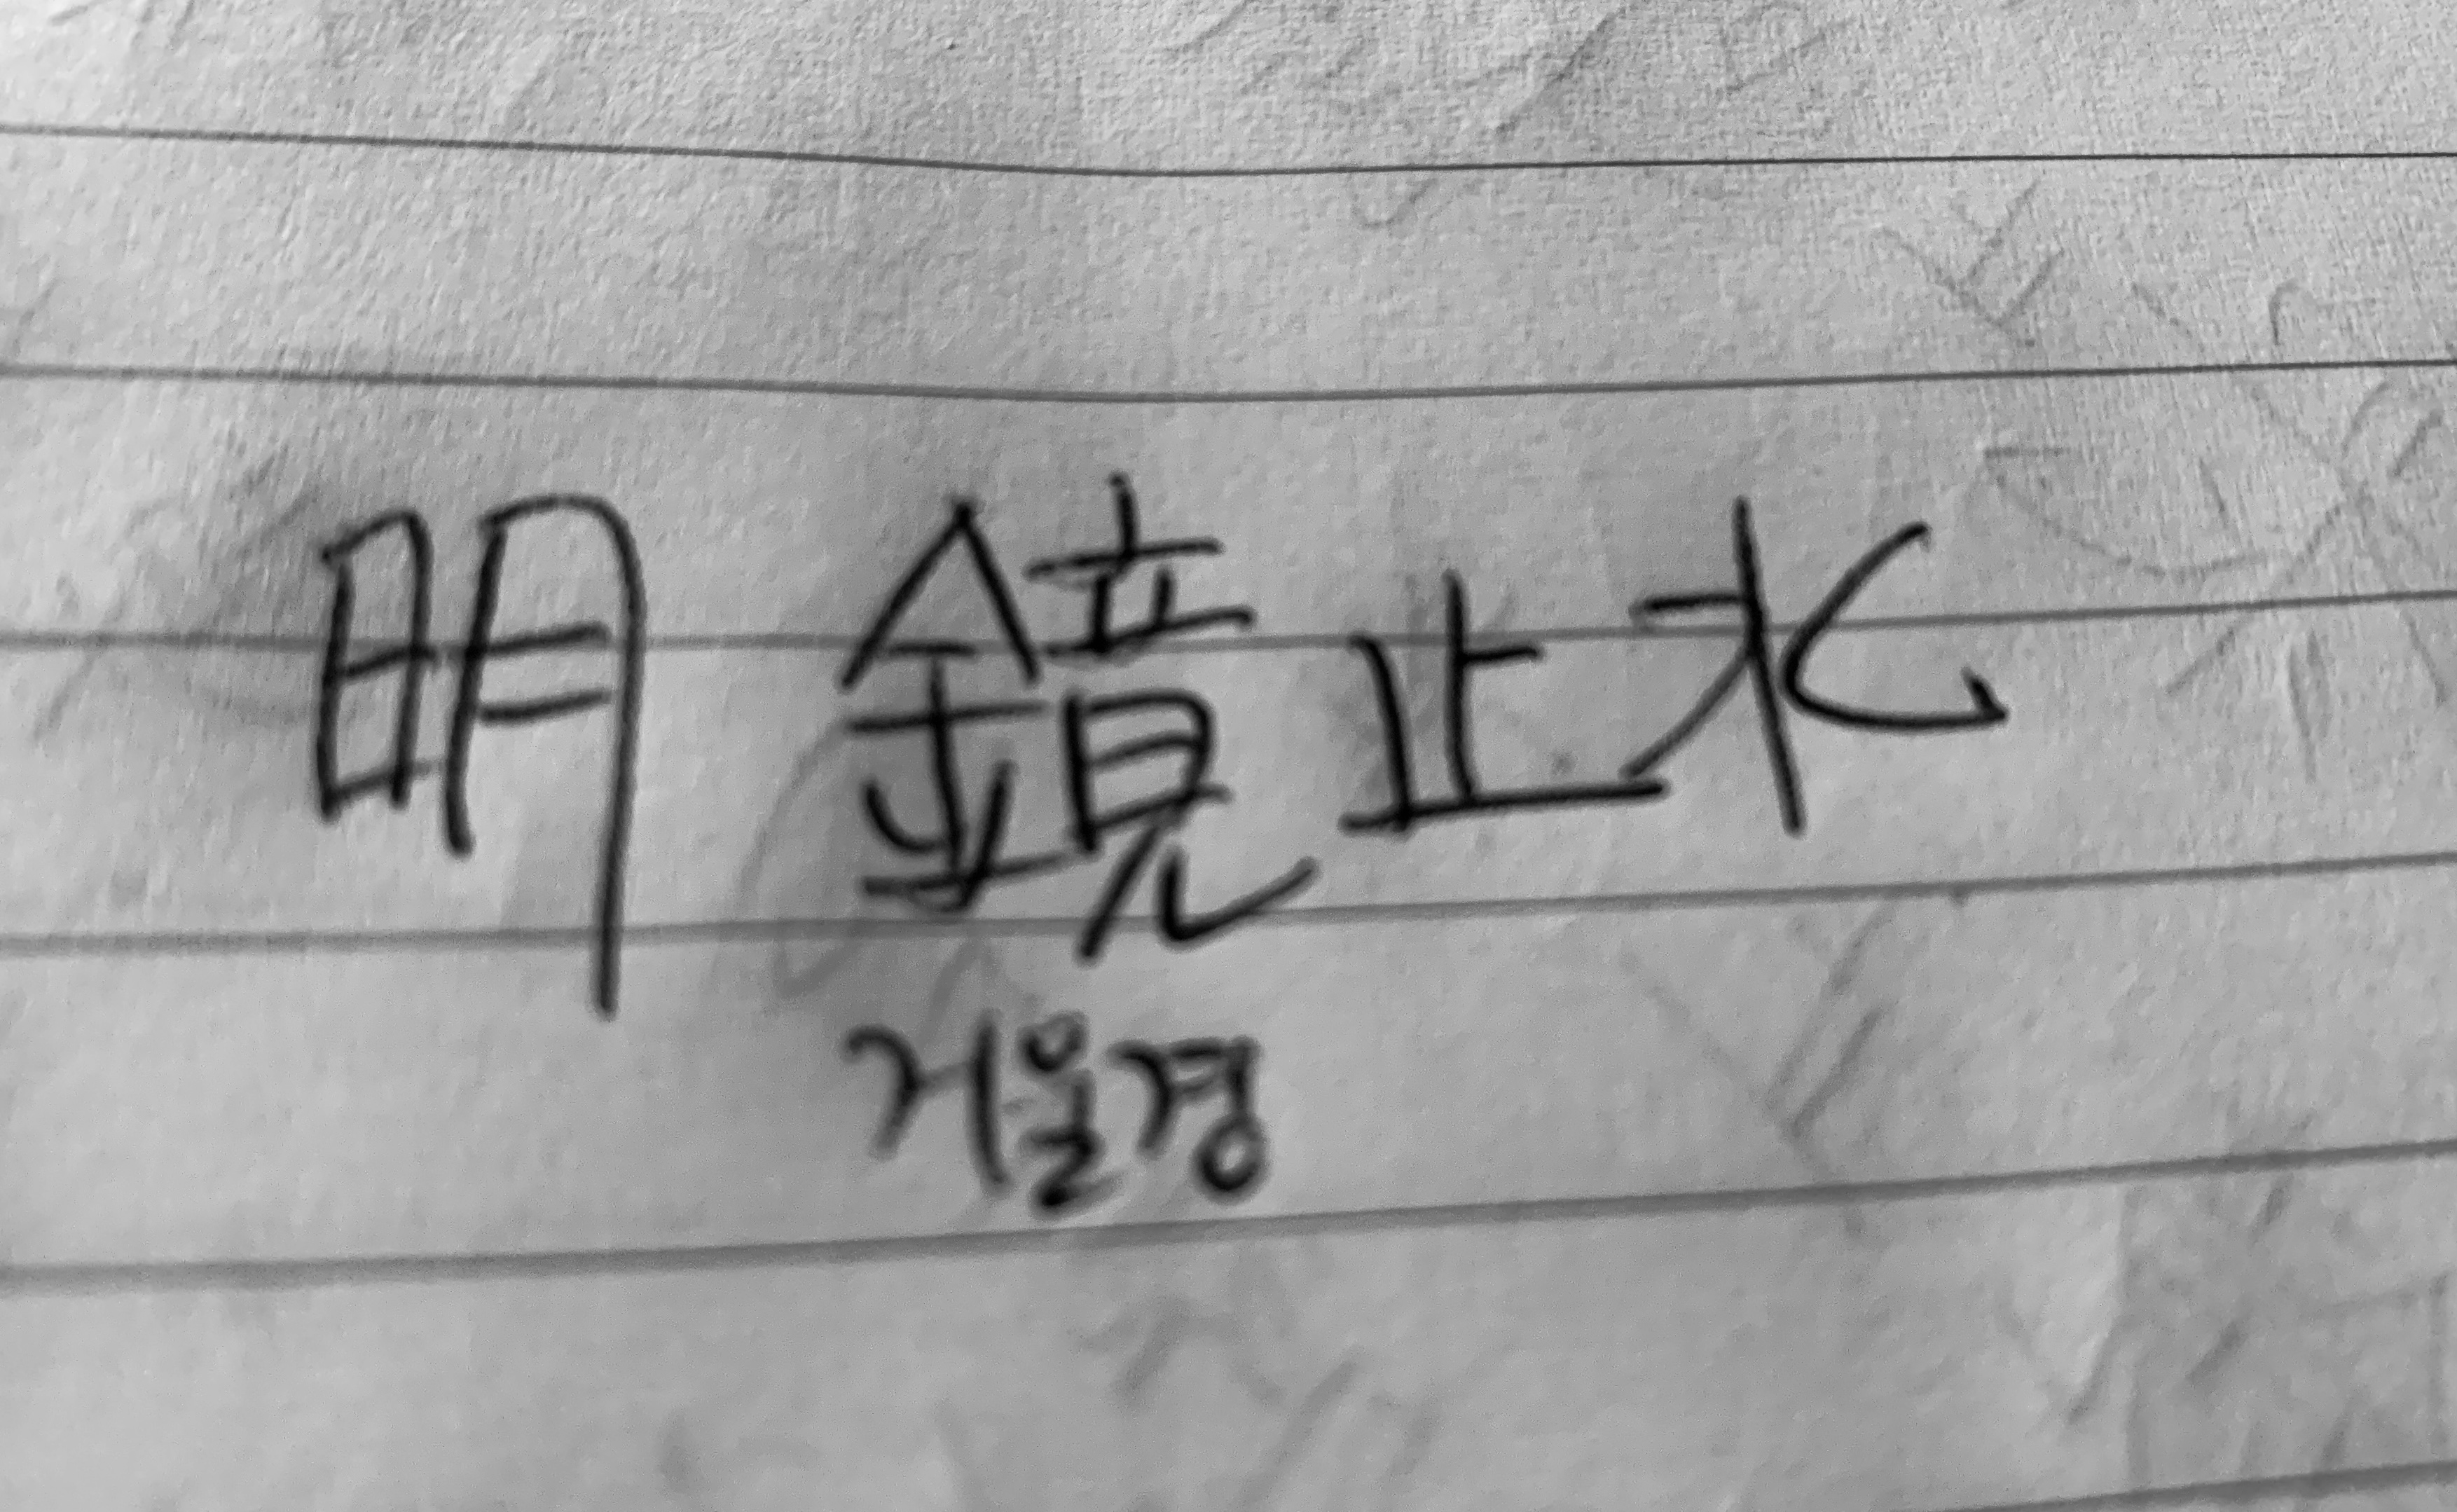 明鏡止水
거울경